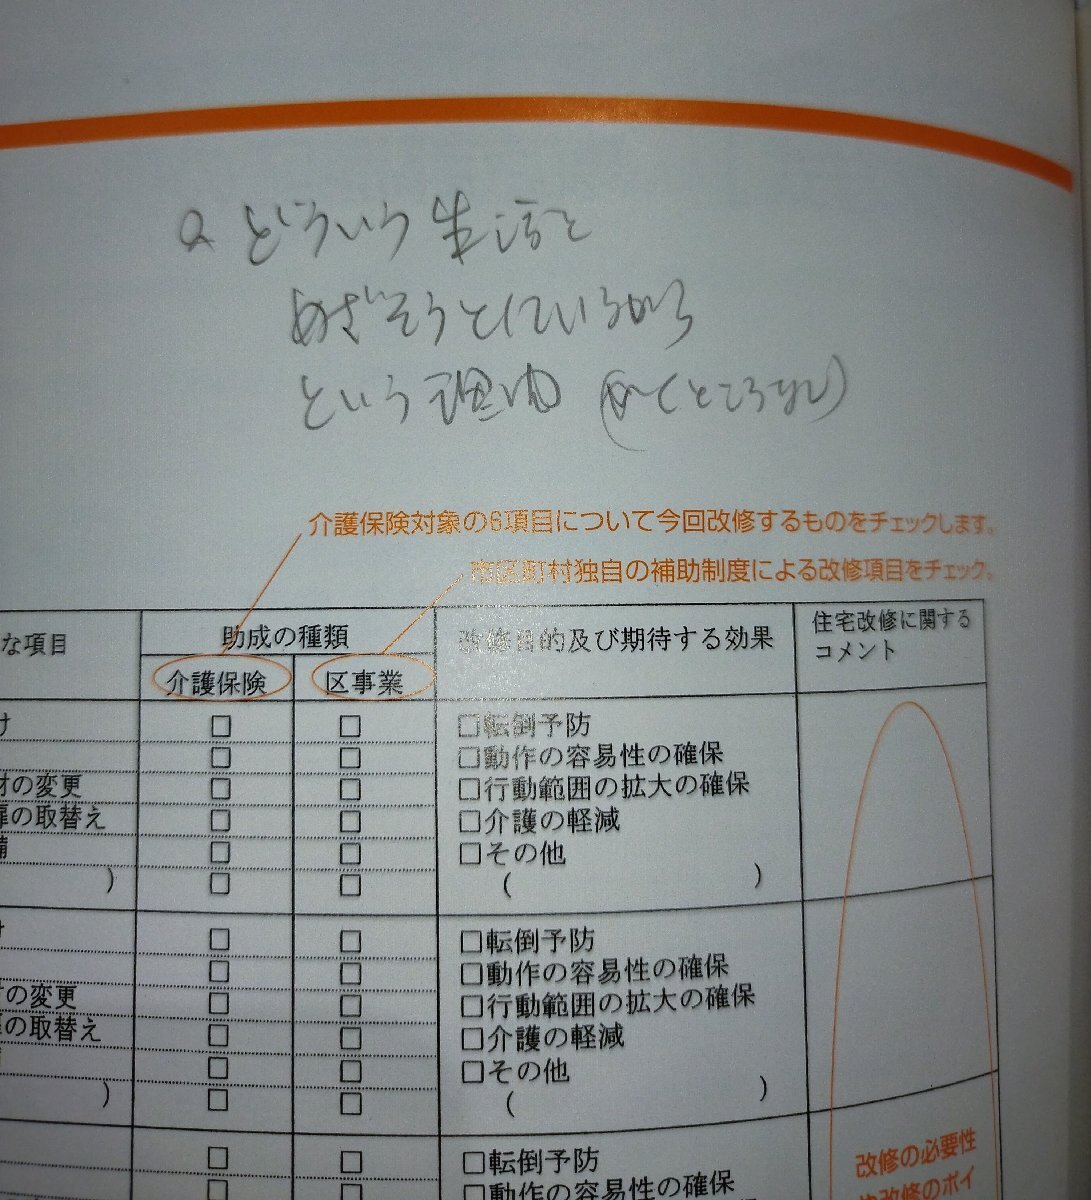 Q どういう生活を
めざそうとしているから
という理由 (かくところなし)
介護保険対象の6項目について今回改修するものをチェックします。
市区町村独自の補助制度による改修項目をチェック。
な項目
助成の種類
介護保険
区事業
改修目的及び期待する効果
住宅改修に関する
コメント
け
材の変更
扉の取替え
備
)
□ □
□ □
□ □
□ □
□ □
□ □
□転倒予防
□動作の容易性の確保
□行動範囲の拡大の確保
□介護の軽減
□その他
( )
け
の変更
の取替え
)
□ □
□ □
□ □
□ □
□ □
□ □
□転倒予防
□動作の容易性の確保
□行動範囲の拡大の確保
□介護の軽減
□その他
( )
□ □
□ □
□転倒予防
□動作の容易性の確保
改修の必要性
改修のポイ